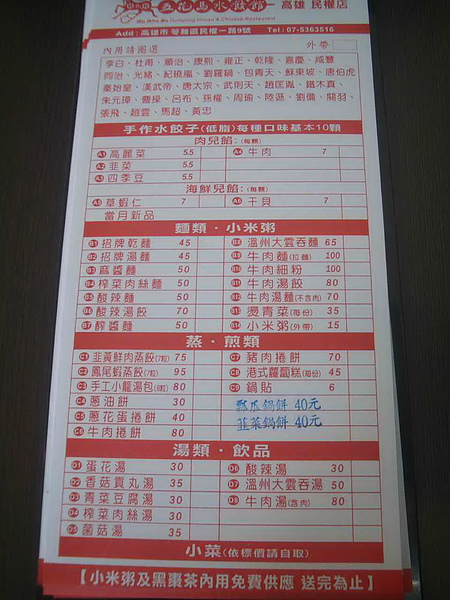 五花馬水餃館 高雄 民權店
Wu Whe Ma Dumpling House & Chinese Restaurant
Add : 高雄市苓雅區民權一路9號 Tel : 07-5363516
內用請圈選 外帶
李白、杜甫、順治、康熙、雍正、乾隆、嘉慶、咸豐
同治、光緒、紀曉嵐、劉羅鍋、包青天、蘇東坡、唐伯虎
秦始皇、漢武帝、唐太宗、武則天、趙匡胤、鐵木真、
朱元璋、曹操、呂布、孫權、周瑜、陸遜、劉備、關羽、
張飛、趙雲、馬超、黃忠
手作水餃子(低脂)每種口味基本10顆
肉兒餡:(每顆)
A1 高麗菜 5.5 A4 牛肉 7
A2 韭菜 5.5
A3 四季豆 5.5
海鮮兒餡:(每顆)
A5 草蝦仁 7 A6 干貝 7
當月新品
麵類・小米粥
B1 招牌乾麵 45 B8 溫州大雲吞麵 65
B2 招牌湯麵 45 B9 牛肉麵(拉麵) 100
B3 麻醬麵 50 B10 牛肉細粉 100
B4 榨菜肉絲麵 50 B11 牛肉湯餃 80
B5 酸辣麵 50 B12 牛肉湯麵(不含肉) 70
B6 酸辣湯餃 70 B13 燙青菜(每份) 35
B7 醡醬麵 50 B14 小米粥(外帶) 15
蒸・煎類
C1 韭黃鮮肉蒸餃(7粒) 75 C7 豬肉捲餅 70
C2 鳳尾蝦蒸餃(7粒) 95 C8 港式蘿蔔糕(每份) 45
C3 手工小籠湯包(8粒) 80 C9 鍋貼 6
C4 蔥油餅 30 瓠瓜鍋餅 40元
C5 蔥花蛋捲餅 40 韮菜鍋餅 40元
C6 牛肉捲餅 80
湯類・飲品
D1 蛋花湯 30 D6 酸辣湯 30
D2 香菇貢丸湯 35 D7 溫州大雲吞湯 50
D3 青菜豆腐湯 30 D8 牛肉湯(含肉) 80
D4 榨菜肉絲湯 30
D5 菌菇湯 35
小菜(依標價請自取)
【小米粥及黑棗茶內用免費供應 送完為止】